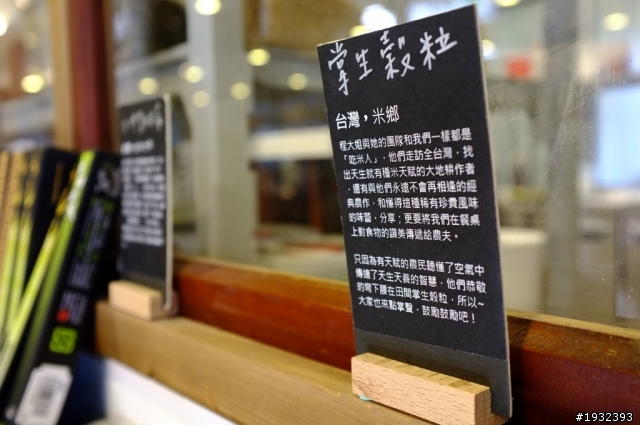 掌生穀粒
台灣，米鄉
程大姐與她的團隊和我們一樣都是
「吃米人」，他們走訪全台灣，找
出天生就有種米天賦的大地耕作者
，還有與他們永遠不會再相逢的經
典農作，和懂得這種稀有珍貴風味
的味蕾，分享；更要將我們在餐桌
上對食物的讚美傳遞給農夫。
只因為有天賦的農民聽懂了空氣中
傳達了天生天養的智慧，他們恭敬
的彎下腰在田間掌生穀粒，所以~
大家也來點掌聲，鼓勵鼓勵吧！
#1932393